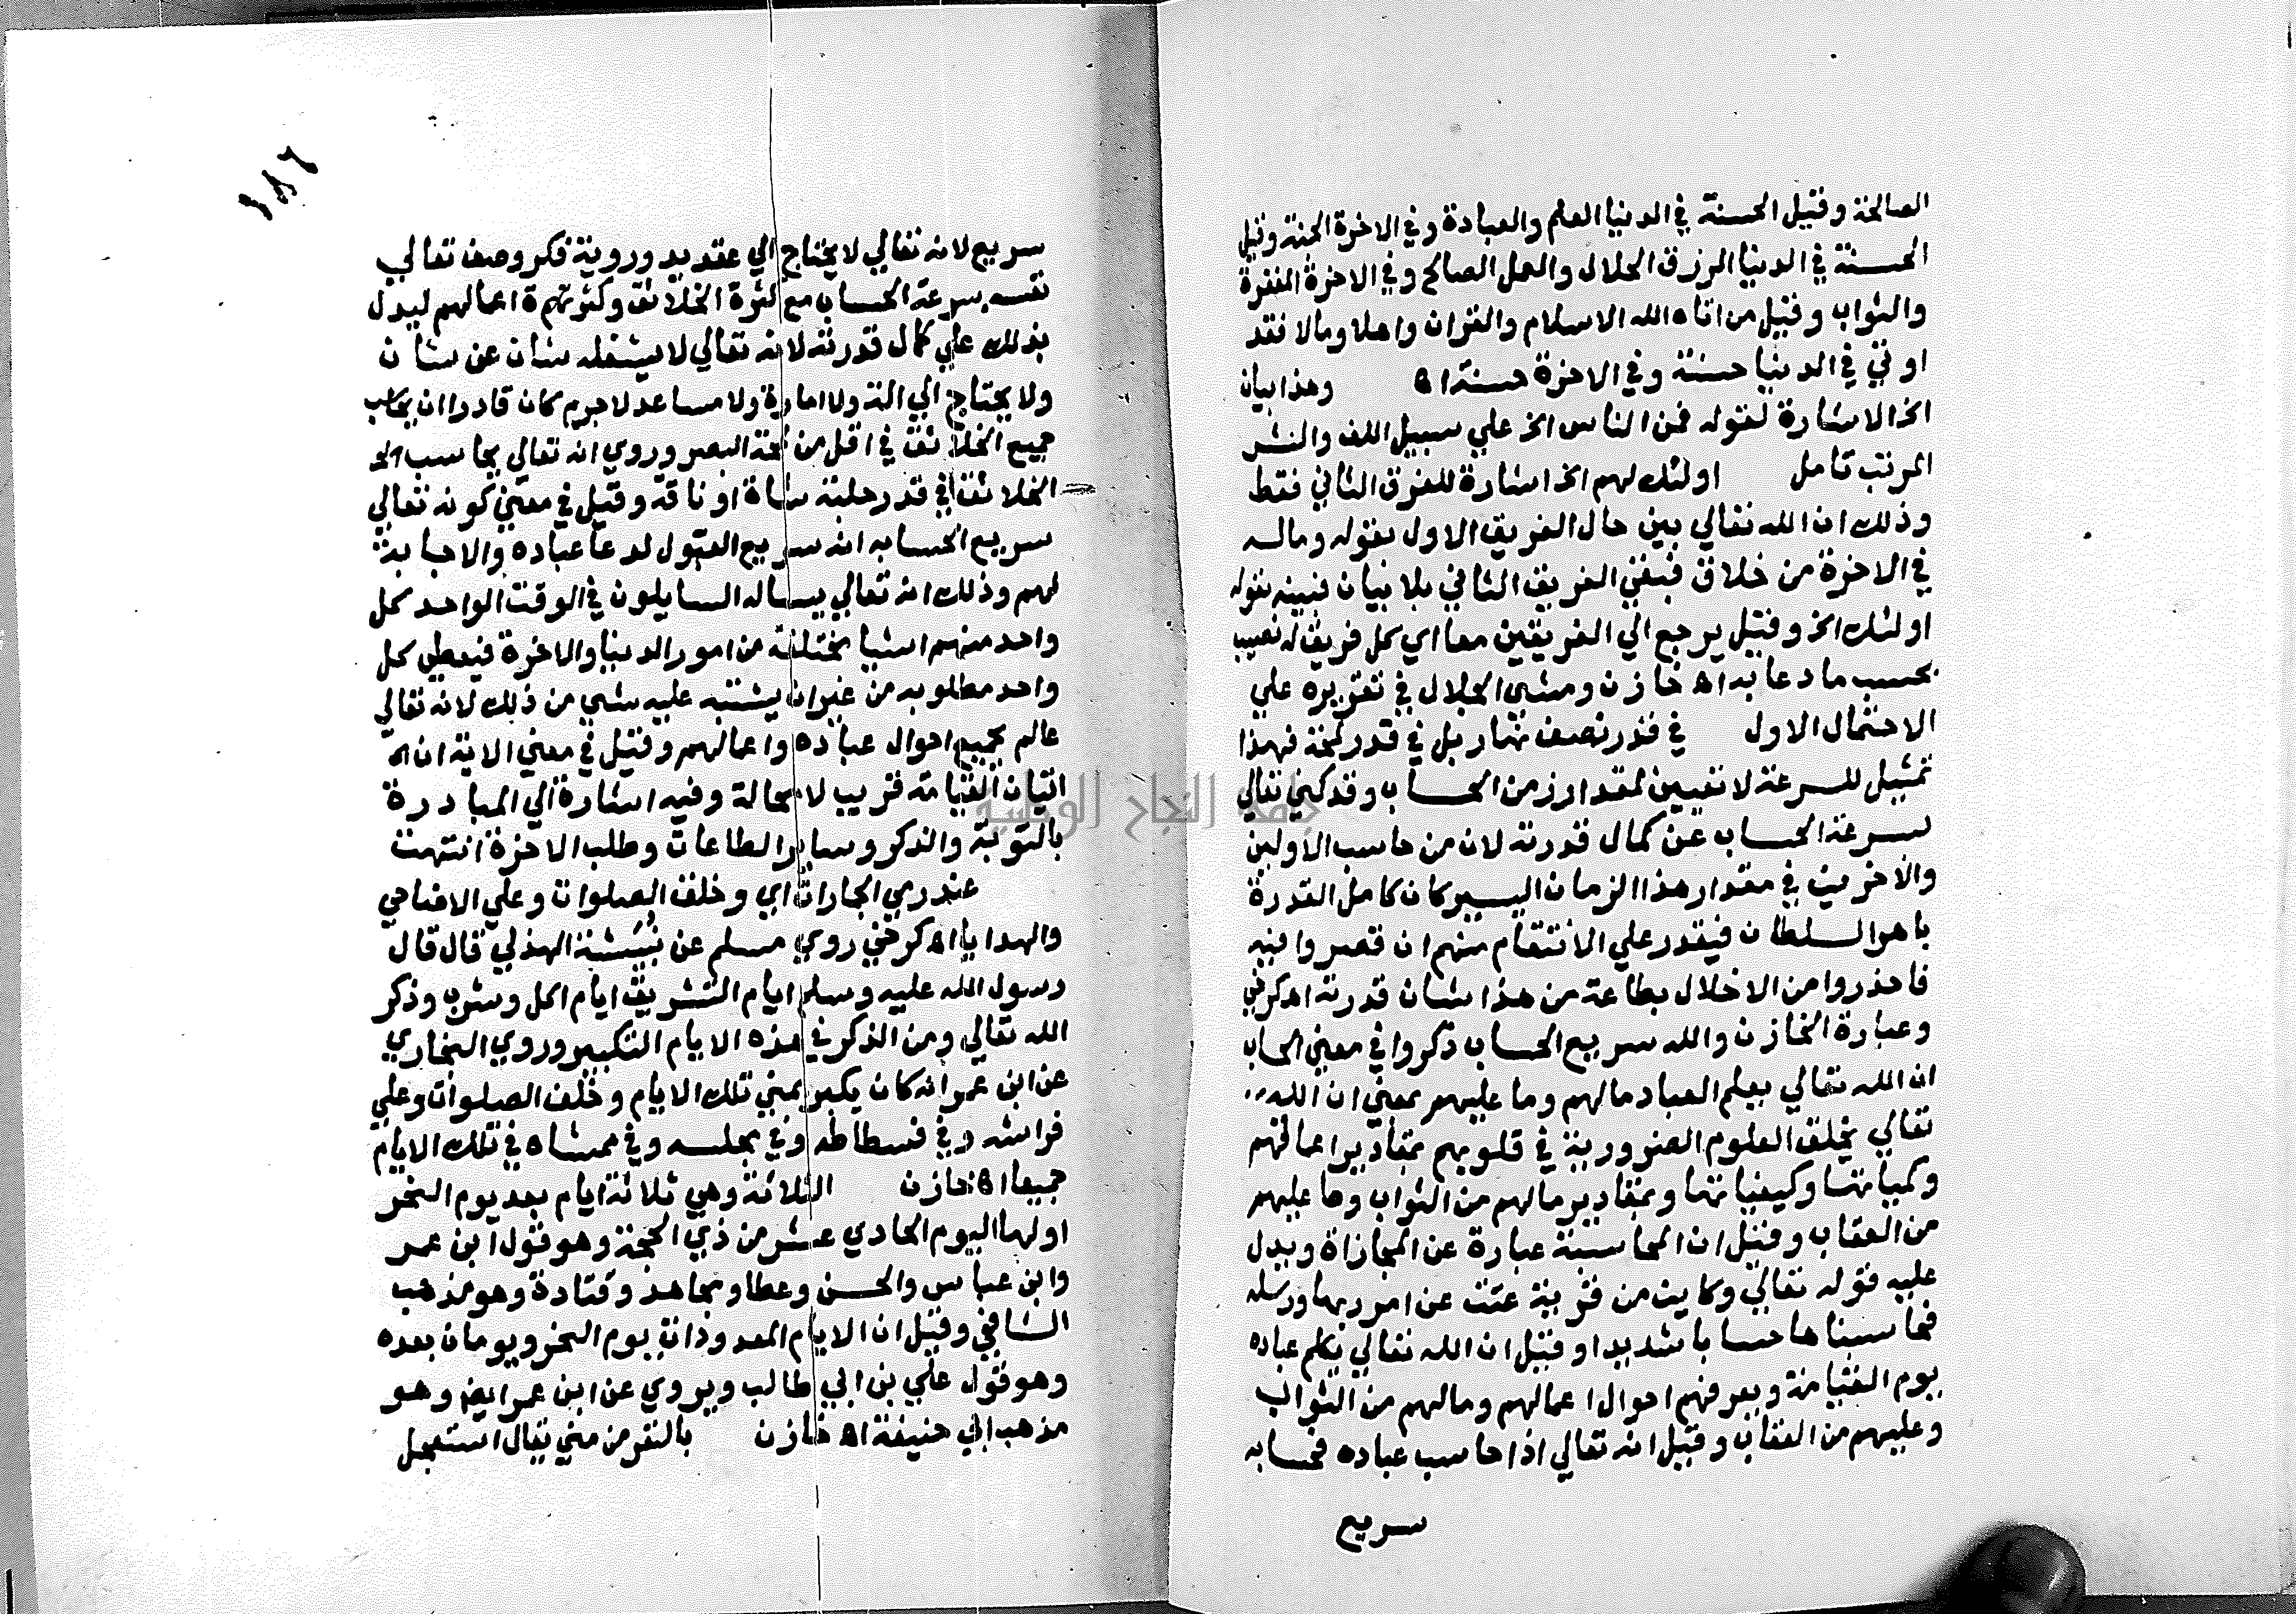 الصالحة وقيل الحسنة في الدنيا العلم والعبادة وفي الاخرة الجنة وقيل
الحسنة في الدنيا الرزق الحلال والعمل الصالح وفي الاخرة المغفرة
والثواب وقيل من اتاه الله الاسلام والقران واهلا ومالا فقد
اوتي في الدنيا حسنة وفي الاخرة حسنة اه وهذا بيان
الخ الاشارة لقوله فمن الناس الخ علي سبيل اللف والنشر
المرتب تامل اولئك لهم الخ اشارة للفرق الثاني فقط
وذلك ان الله تعالي بين حال الفريق الاول بقوله وماله
في الاخرة من خلاق فبقي الفريق الثاني بلا بيان فبينه بقوله
اولئك الخ وقيل يرجع الي الفريقين معا اي كل فريق له نصيب
بحسب ما دعا به اه خازن ومشي الجلال في تقريره علي
الاحتمال الاول في قدر نصف نهار بل في قدر لمحة فهذا
تمثيل للسرعة لا تعيين لمقدار زمن الحساب وقد كني تعالي
بسرعة الحساب عن كمال قدرته لان من حاسب الاولين
والاخرين في مقدار هذا الزمان اليسير كان كامل القدرة
باهر السلطان فيقدر علي الانتقام منهم ان قصروا فيه
فاحذروا من الاخلال بطاعة من هذا شان قدرته اه كرخي
وعبارة الخازن والله سريع الحساب ذكروا في معني الحساب
ان الله تعالي يعلم العباد مالهم وما عليهم بمعني ان الله
تعالي يخلق العلوم الضرورية في قلوبهم بمقادير اعمالهم
وكمياتها وكيفياتها وبمقادير مالهم من الثواب وما عليهم
من العقاب وقيل ان المحاسبة عبارة عن المجازاة ويدل
عليه قوله تعالي وكاين من قرية عتت عن امر ربها ورسله
فحاسبناها حسابا شديدا وقيل ان الله تعالي يكلم عباده
يوم القيامة ويعرفهم احوال اعمالهم ومالهم من الثواب
وعليهم من العقاب وقيل انه تعالي اذا حاسب عباده فحسابه
سريع
١٨٦
سريع لانه تعالي لا يحتاج الي عقد يد وروية فكر وصف تعالي
نفسه بسرعة الحساب مع كثرة الخلائق وكثرتهم اعمالهم ليدل
بذلك علي كمال قدرته لانه تعالي لا يشغله شان عن شان
ولا يحتاج الي الة ولا امارة ولا مساعد لا جرم كان قادرا ان يحاسب
جميع الخلائق في اقل من لمحة البصر وروي انه تعالي يحاسب
الخلائق في قدر حلبة شاة او ناقة وقيل في معني كونه تعالي
سريع الحساب انه سريع القبول لدعا عباده والاجابة
لهم وذلك انه تعالي يساله السايلون في الوقت الواحد كل
واحد منهم اشيا مختلفة من امور الدنيا والاخرة فيعطي كل
واحد مطلوبه من غير ان يشتبه عليه شي من ذلك لانه تعالي
عالم بجميع احوال عباده واعمالهم وقيل في معني الاية ان
اتيان القيامة قريب لا محالة وفيه اشارة الي المبادرة
بالتوبة والذكر وساير الطاعات وطلب الاخرة انتهت
عند رمي الجارات اي وخلف الصلوات وعلي الاضاحي
والهدايا اه كرخي روي مسلم عن نبيشة الهذلي قال قال
رسول الله عليه وسلم ايام التشريق ايام اكل وشرب وذكر
الله تعالي ومن الذكر في هذه الايام التكبير وروي البخاري
عن ابن عمر انه كان يكبر بمني تلك الايام وخلف الصلوات وعلي
فراشه وفي فسطاطه وفي مجلسه وفي ممشاه في تلك الايام
جميعا اه خازن الثلاثة وهي ثلاثة ايام بعد يوم النحر
اولها اليوم الحادي عشر من ذي الحجة وهو قول ابن عمر
وابن عباس والحسن وعطا ومجاهد وقتادة وهو مذهب
الشافعي وقيل ان الايام المعدودات يوم النحر ويومان بعده
وهو قول علي بن ابي طالب ويروي عن ابن عمر ايضا وهو
مذهب ابي حنيفة اه خازن بالنفر من مني يقال استعجل
جامعة النجاح الوطنية